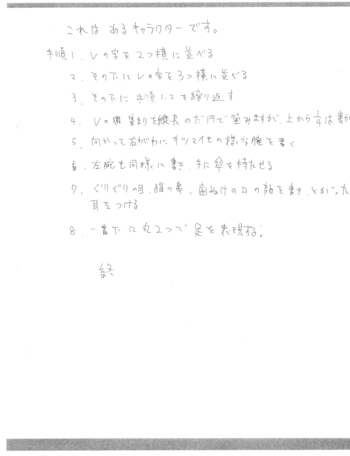 これは あるキャラクターです。
手順1. Vの字を2つ横に並べる
2. その下にVの字を3つ横に並べる
3. その下に手順1.2を繰り返す
4. Vの集まりを縦長のだ円で囲みますが、上から は書か
5. 向かって右がわに の様な腕を書く
6. 左腕も同様に書き、手に傘を持たせる
7. ぐりぐりの目、猫の鼻、歯ぬけの口の顔を書き、とがった
耳をつける
8. 一番下に丸2つで足を表現する。
終